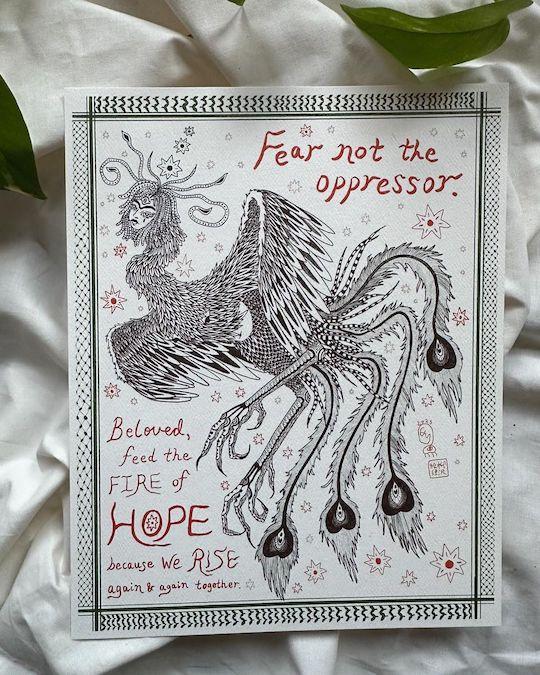 Fear not the
oppressor.
Beloved,
feed the
FIRE of
HOPE
because WE RISE
again & again together.